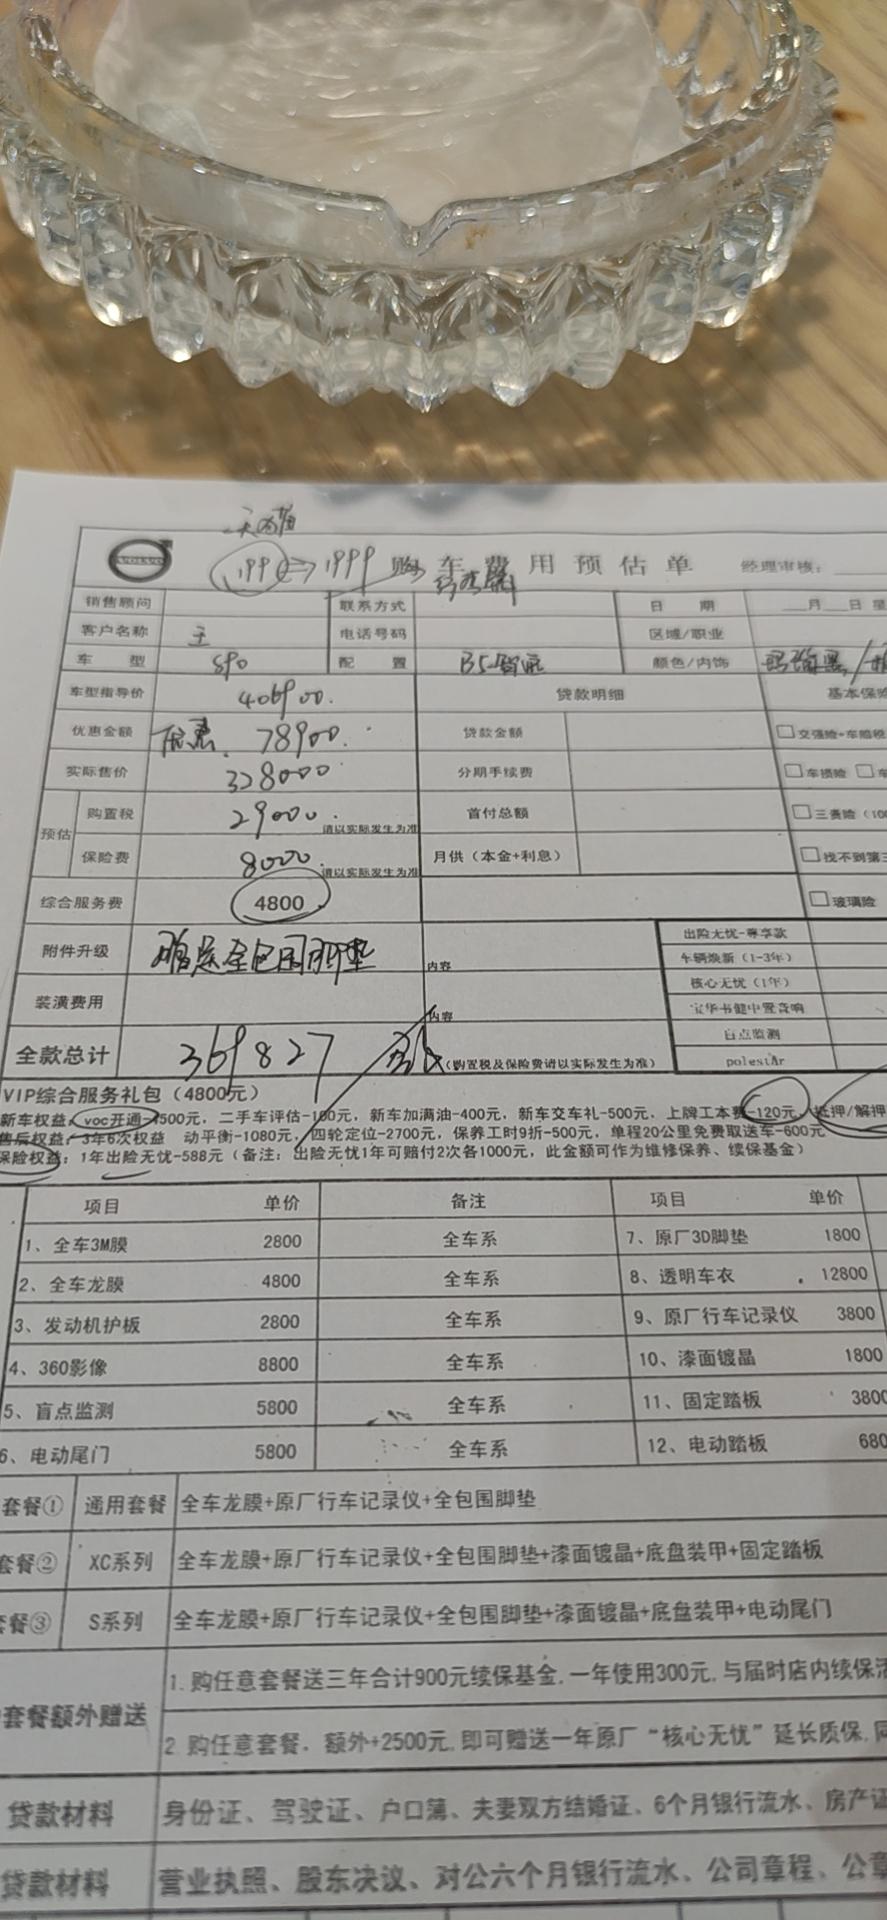 天猫
199 => 1999 购车费用预估单 经理审核：
VOLVO
销售顾问 联系方式 日 期 月 日 星
客户名称 王 电话号码 区域/职业
车 型 S90 配 置 B5 智远 颜色/内饰
车型指导价 406900. 贷款明细 基本保险
优惠金额 优惠. 78900. 贷款金额 交强险+车船税
实际售价 328000 分期手续费 车损险
预估 购置税 29000. 请以实际发生为准 首付总额 三责险（100
保险费 8000. 请以实际发生为准 月供（本金+利息） 找不到第三
综合服务费 4800 玻璃险
附件升级 赠送全包围脚垫 内容 出险无忧-尊享款
车辆焕新（1-3年）
装潢费用 内容 核心无忧（1年）
宝华韦健中置音响
盲点监测
全款总计 369827 （购置税及保险费请以实际发生为准） polestar
VIP综合服务礼包（4800元）
新车权益：voc开通-1500元，二手车评估-100元，新车加满油-400元，新车交车礼-500元，上牌工本费-120元，抵押/解押
售后权益：3年6次权益 动平衡-1080元，四轮定位-2700元，保养工时9折-500元，单程20公里免费取送车-600元
保险权益：1年出险无忧-588元（备注：出险无忧1年可赔付2次各1000元，此金额可作为维修保养、续保基金）
项目 单价 备注 项目 单价
1、全车3M膜 2800 全车系 7、原厂3D脚垫 1800
2、全车龙膜 4800 全车系 8、透明车衣 12800
3、发动机护板 2800 全车系 9、原厂行车记录仪 3800
4、360影像 8800 全车系 10、漆面镀晶 1800
5、盲点监测 5800 全车系 11、固定踏板 3800
6、电动尾门 5800 全车系 12、电动踏板 680
套餐① 通用套餐 全车龙膜+原厂行车记录仪+全包围脚垫
套餐② XC系列 全车龙膜+原厂行车记录仪+全包围脚垫+漆面镀晶+底盘装甲+固定踏板
套餐③ S系列 全车龙膜+原厂行车记录仪+全包围脚垫+漆面镀晶+底盘装甲+电动尾门
套餐额外赠送 1.购任意套餐送三年合计900元续保基金,一年使用300元,与届时店内续保活
2.购任意套餐．额外+2500元,即可赠送一年原厂“核心无忧”延长质保,同
贷款材料 身份证、驾驶证、户口簿、夫妻双方结婚证、6个月银行流水、房产证
贷款材料 营业执照、股东决议、对公六个月银行流水、公司章程、公章